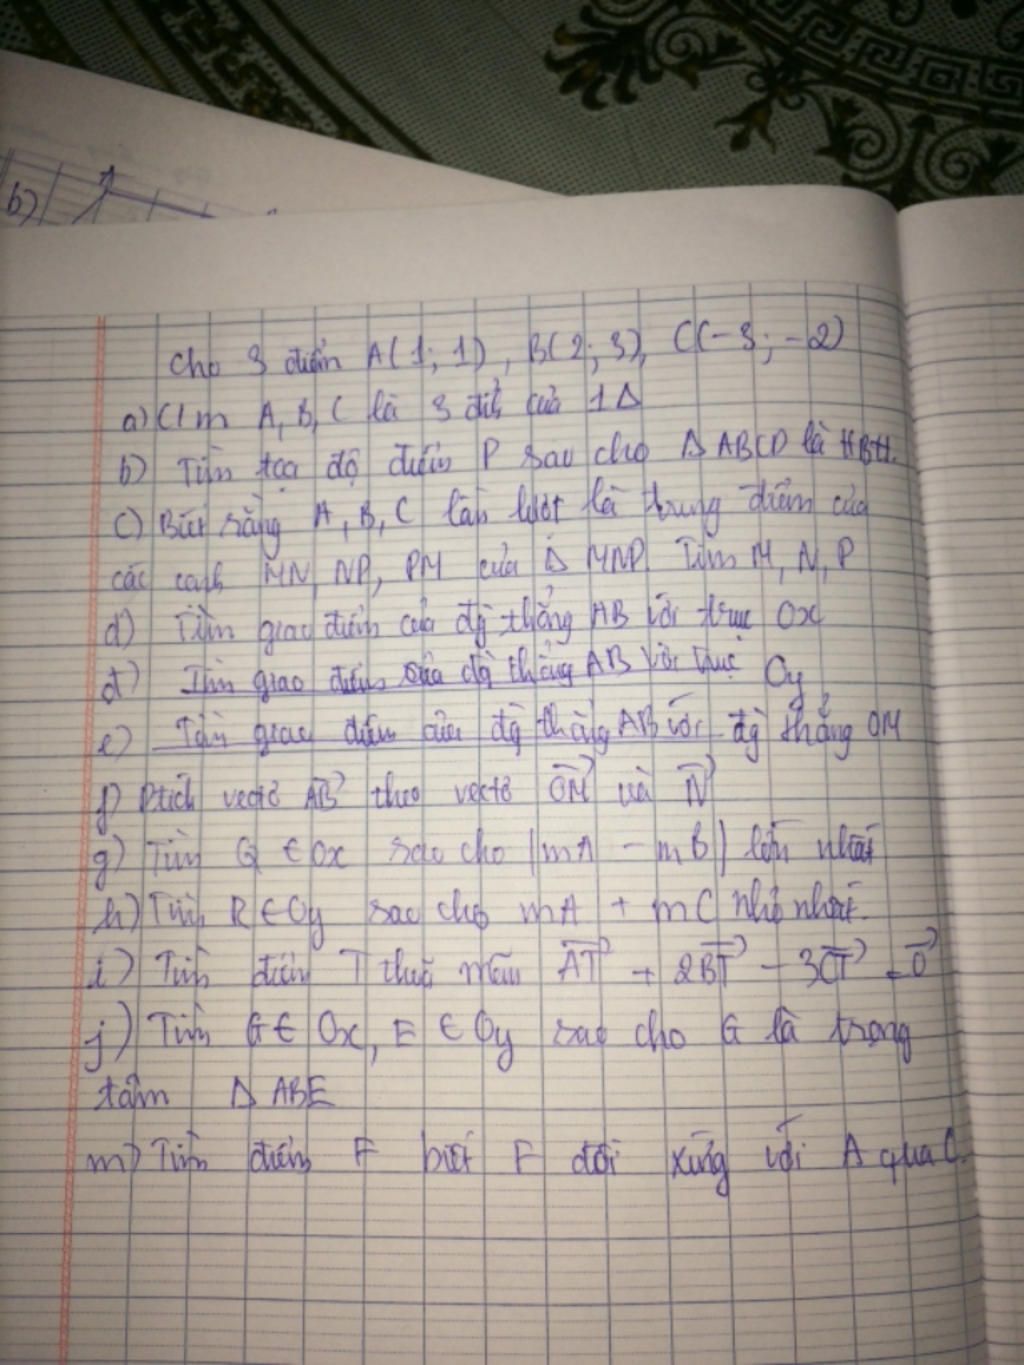 b)
Cho 3 điểm A(1; 1), B(2; 3), C(-3; -2)
a) C/m A, B, C là 3 đỉh của 1 Δ
b) Tìm tọa độ điểm P sao cho Δ ABCD là HBH.
c) Biết rằng A, B, C lần lượt là trung điểm của
các cạnh MN, NP, PM của Δ MNP. Tìm M, N, P
d) Tìm giao điểm của đg thẳng AB với trục Ox
đ) Tìm giao điểm của đg thẳng AB với trục Oy
e) Tìm giao điểm của đg thẳng AB với đg thẳng OM
f) Ptích vectơ \overrightarrow{AB} theo vectơ \overrightarrow{OM} và \overrightarrow{N}
g) Tìm Q ∈ Ox sao cho |mA - mB| lớn nhất
h) Tìm R ∈ Oy sao cho mA + mC nhỏ nhất.
i) Tìm điểm T thoả mãn \overrightarrow{AT} + 2\overrightarrow{BT} - 3\overrightarrow{CT} = \overrightarrow{0}
j) Tìm G ∈ Ox, E ∈ Oy sao cho G là trọng
tâm Δ ABE
m) Tìm điểm F biết F đối xứng với A qua C.